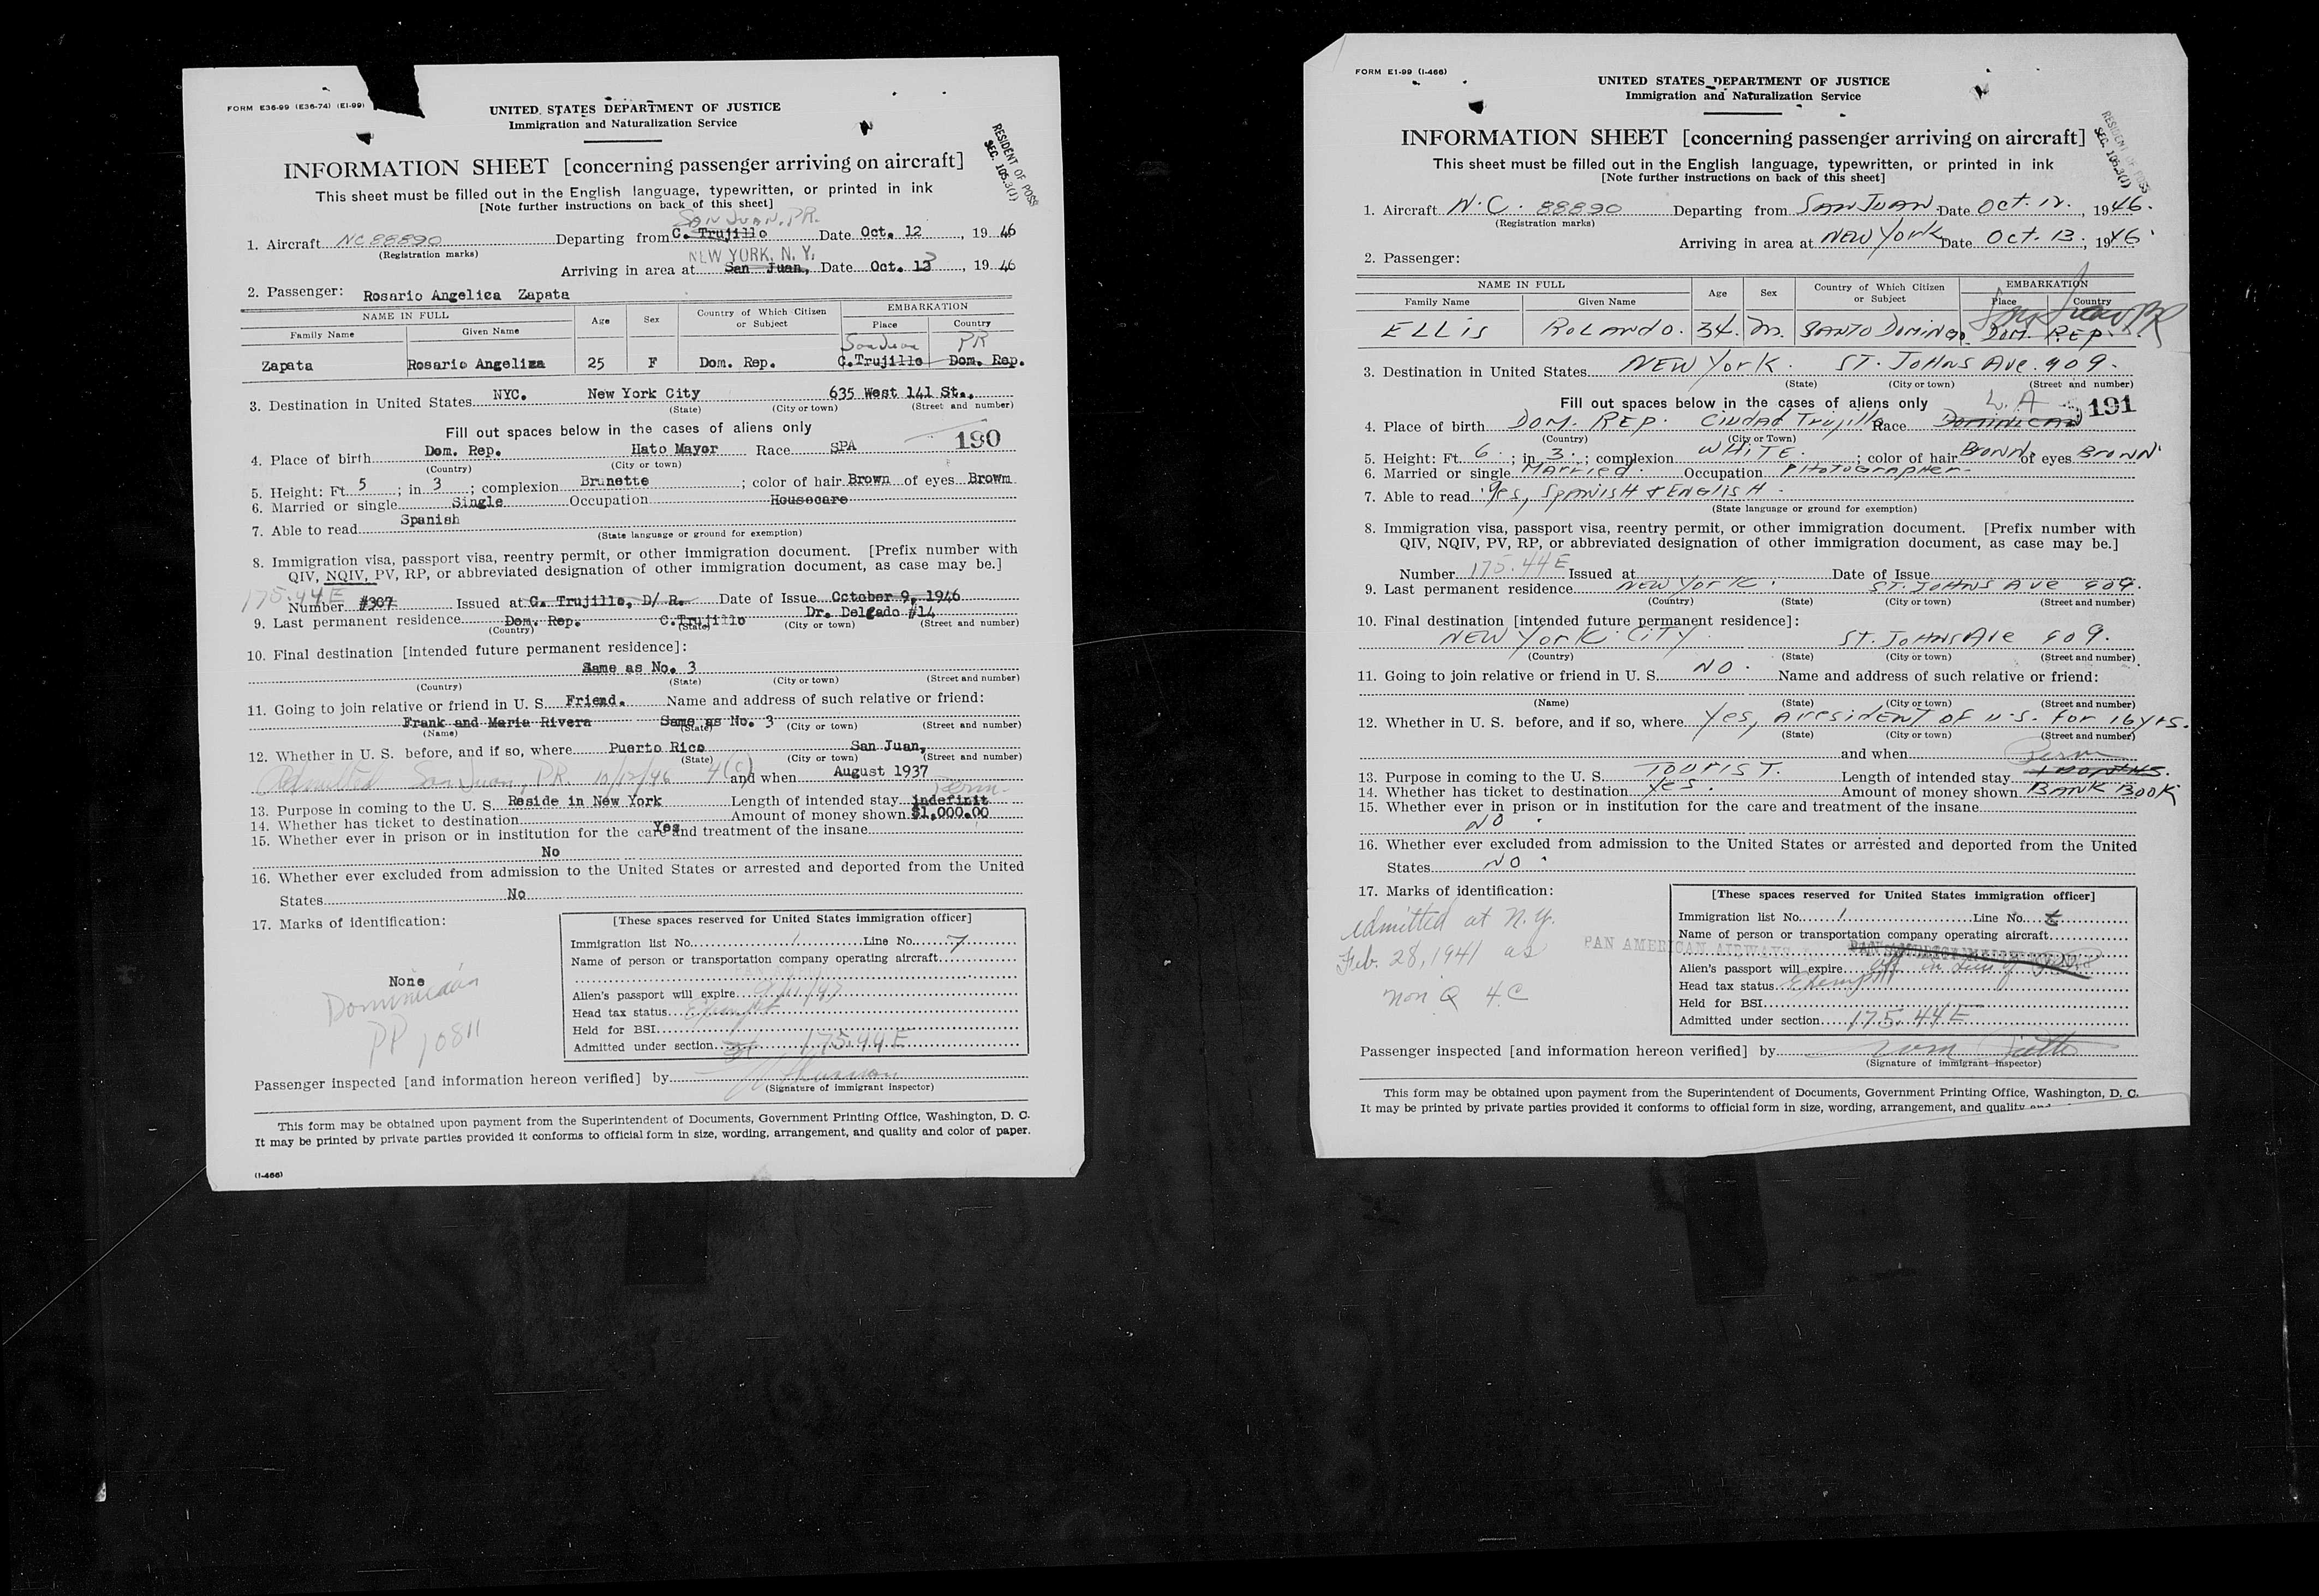 FORM E36-99 (E36-74) (E1-99)
UNITED STATES DEPARTMENT OF JUSTICE
Immigration and Naturalization Service
RESIDENT OF POSS
SEC. 105.3(1)
INFORMATION SHEET [concerning passenger arriving on aircraft]
This sheet must be filled out in the English language, typewritten, or printed in ink
[Note further instructions on back of this sheet]
SAN JUAN, P.R.
1. Aircraft NC 88890 Departing from C. Trujillo Date Oct. 12, 1946
(Registration marks)
NEW YORK, N. Y.
Arriving in area at San Juan, Date Oct. 13, 1946
2. Passenger: Rosario Angelica Zapata
NAME IN FULL Age Sex Country of Which Citizen or Subject EMBARKATION
Family Name Given Name Place Country
San Juan PR
Zapata Rosario Angeliza 25 F Dom. Rep. C.Trujillo Dom. Rep.
3. Destination in United States NYC. New York City 635 West 141 St.,
(State) (City or town) (Street and number)
Fill out spaces below in the cases of aliens only
190
4. Place of birth Dom. Rep. Hato Mayor Race SPA
(Country) (City or town)
5. Height: Ft. 5; in 3; complexion Brunette; color of hair Brown of eyes Browm
6. Married or single Single Occupation Housecare
7. Able to read Spanish
(State language or ground for exemption)
8. Immigration visa, passport visa, reentry permit, or other immigration document. [Prefix number with
QIV, NQIV, PV, RP, or abbreviated designation of other immigration document, as case may be.]
175.44E
Number #307 Issued at C. Trujillo, D/ R. Date of Issue October 9, 1946
9. Last permanent residence Dom. Rep. C.Trujillo Dr. Delgado #14
(Country) (State) (City or town) (Street and number)
10. Final destination [intended future permanent residence]:
Same as No. 3
(Country) (State) (City or town) (Street and number)
11. Going to join relative or friend in U. S. Friend. Name and address of such relative or friend:
Frank and Maria Rivera Same as No. 3
(Name) (State) (City or town) (Street and number)
12. Whether in U. S. before, and if so, where Puerto Rico San Juan,
(State) (City or town) (Street and number)
Admitted San Juan, P.R. 10/12/46 4(c) and when August 1937
Perm.
13. Purpose in coming to the U. S. Reside in New York Length of intended stay indefinit
14. Whether has ticket to destination Yes Amount of money shown $1,000.00
15. Whether ever in prison or in institution for the care and treatment of the insane
No
16. Whether ever excluded from admission to the United States or arrested and deported from the United
States No
17. Marks of identification:
None
Dominican
PP 10811
[These spaces reserved for United States immigration officer]
Immigration list No. 1 Line No. 7
Name of person or transportation company operating aircraft
Alien's passport will expire
Head tax status Exempt
Held for BSI
Admitted under section 175.44E
Passenger inspected [and information hereon verified] by
(Signature of immigrant inspector)
This form may be obtained upon payment from the Superintendent of Documents, Government Printing Office, Washington, D. C.
It may be printed by private parties provided it conforms to official form in size, wording, arrangement, and quality and color of paper.
(I-466)
FORM E1-99 (I-466)
UNITED STATES DEPARTMENT OF JUSTICE
Immigration and Naturalization Service
RESIDENT OF POSS
SEC. 105.3(1)
INFORMATION SHEET [concerning passenger arriving on aircraft]
This sheet must be filled out in the English language, typewritten, or printed in ink
[Note further instructions on back of this sheet]
1. Aircraft N.C. 88890 Departing from SAN JUAN Date Oct. 12, 1946.
(Registration marks)
Arriving in area at NEW YORK Date Oct. 13, 1946
2. Passenger:
NAME IN FULL Age Sex Country of Which Citizen or Subject EMBARKATION
Family Name Given Name Place Country
San Juan PR
ELLIS ROLANDO. 34. M. SANTO DOMINGO. DOM. REP.
3. Destination in United States NEW YORK. ST. JOHNS AVE. 909.
(State) (City or town) (Street and number)
Fill out spaces below in the cases of aliens only
L.A
191
4. Place of birth DOM. REP. CIUDAD Trujillo Race DOMINICAN
(Country) (City or Town)
5. Height: Ft. 6; in 3; complexion WHITE; color of hair BROWN of eyes BROWN
6. Married or single MARRIED. Occupation PHOTOGRAPHER
7. Able to read Yes, SPANISH & ENGLISH.
(State language or ground for exemption)
8. Immigration visa, passport visa, reentry permit, or other immigration document. [Prefix number with
QIV, NQIV, PV, RP, or abbreviated designation of other immigration document, as case may be.]
Number 175.44E Issued at Date of Issue
9. Last permanent residence NEW YORK. ST. JOHNS AVE 909.
(Country) (State) (City or town) (Street and number)
10. Final destination [intended future permanent residence]:
NEW YORK CITY. ST. JOHNS AVE 909.
(Country) (State) (City or town) (Street and number)
11. Going to join relative or friend in U. S. NO. Name and address of such relative or friend:
(Name) (State) (City or town) (Street and number)
12. Whether in U. S. before, and if so, where Yes, A resident of U.S. for 16 yrs.
(State) (City or town) (Street and number)
and when
Perm
13. Purpose in coming to the U. S. TOURIST. Length of intended stay
14. Whether has ticket to destination Yes. Amount of money shown BANK BOOK
15. Whether ever in prison or in institution for the care and treatment of the insane
NO.
16. Whether ever excluded from admission to the United States or arrested and deported from the United
States NO.
17. Marks of identification:
admitted at N.Y.
Feb. 28, 1941 as
non Q 4.C
[These spaces reserved for United States immigration officer]
Immigration list No. 1 Line No.
Name of person or transportation company operating aircraft
PAN AMERICAN AIRWAYS
Alien's passport will expire
Head tax status Exempt
Held for BSI
Admitted under section 175.44E
Passenger inspected [and information hereon verified] by
(Signature of immigrant inspector)
This form may be obtained upon payment from the Superintendent of Documents, Government Printing Office, Washington, D. C.
It may be printed by private parties provided it conforms to official form in size, wording, arrangement, and quality and